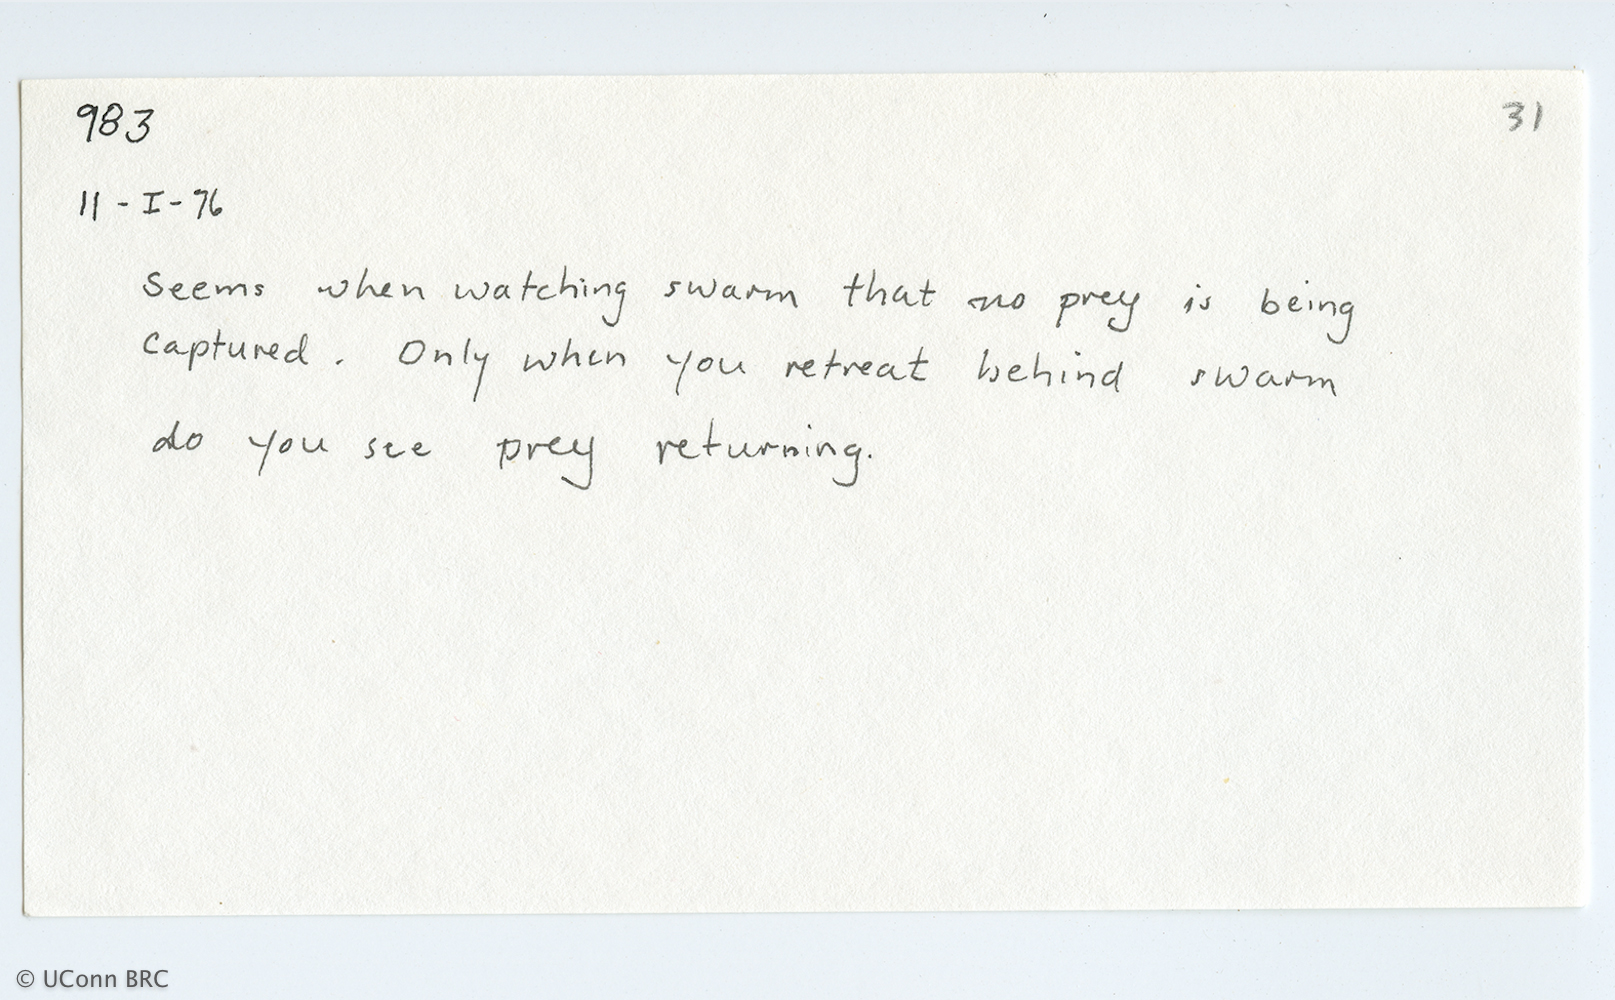 983
31
11-I-76
Seems when watching swarm that no prey is being
captured. Only when you retreat behind swarm
do you see prey returning.
© UConn BRC